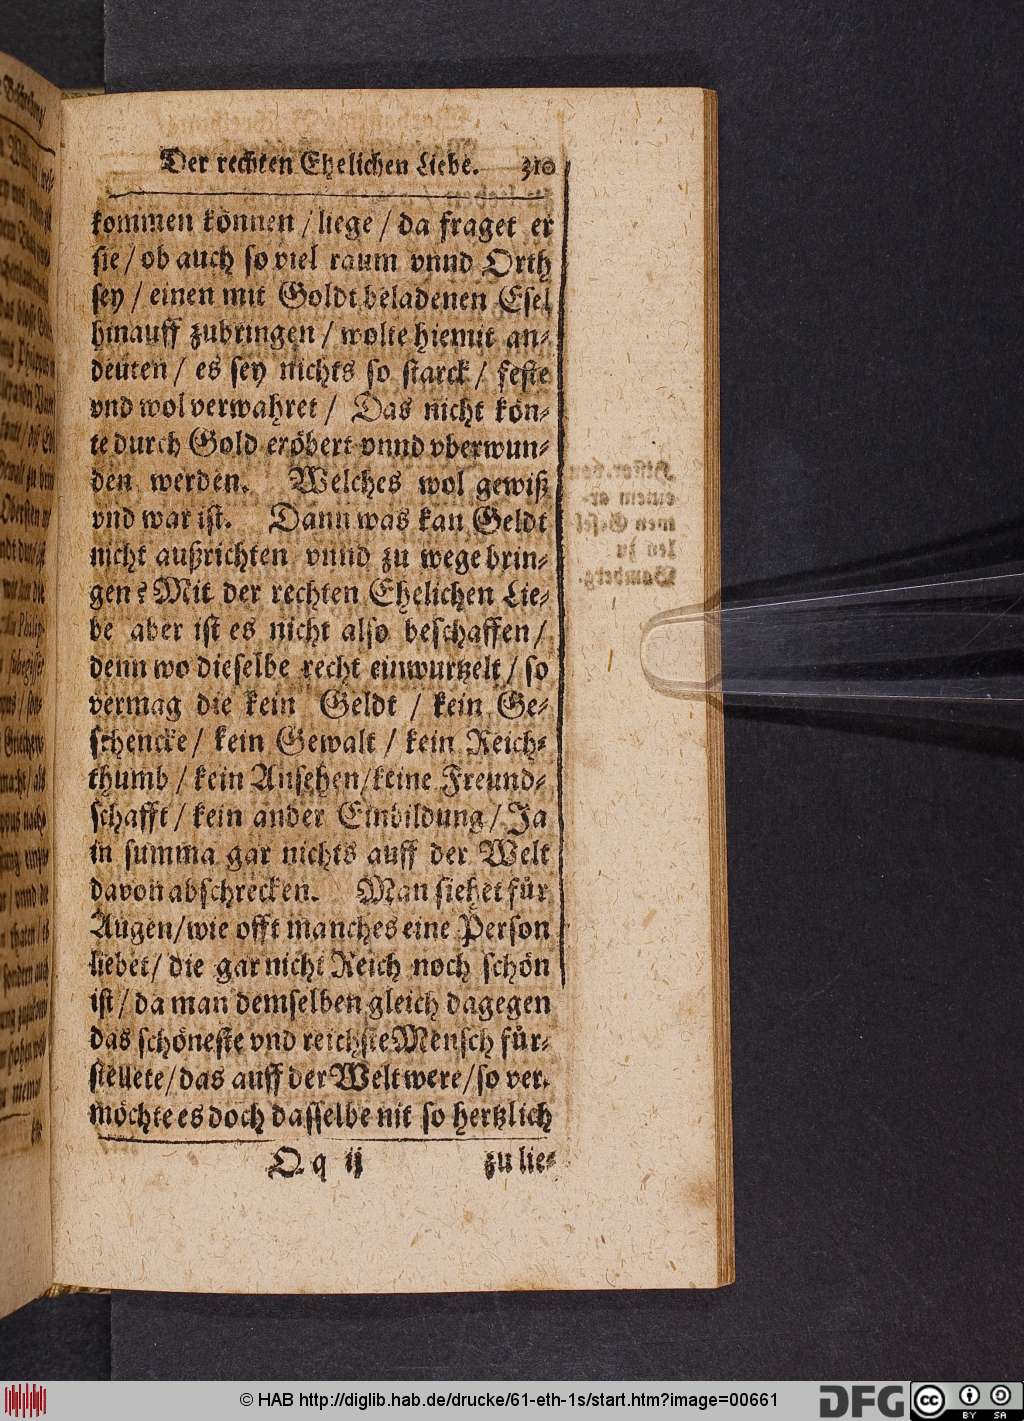 Der rechten Ehelichen Liebe. 310
kommen können / liege / da fraget er
sie / ob auch so viel raum vnnd Orth
sey / einen mit Goldt beladenen Esel
hinauff zubringen / wolte hiemit an-
deuten / es sey nichts so starck / feste
vnd wol verwahret / Das nicht kön-
te durch Gold eröbert vnnd vberwun-
den werden. Welches wol gewiß
vnd war ist. Dann was kan Geldt
nicht außrichten vnnd zu wege brin-
gen? Mit der rechten Ehelichen Lie-
be aber ist es nicht also beschaffen /
denn wo dieselbe recht einwurtzelt / so
vermag die kein Geldt / kein Ge-
schencke / kein Gewalt / kein Reich-
thumb / kein Ansehen / keine Freund-
schafft / kein ander Einbildung / Ja
in summa gar nichts auff der Welt
davon abschrecken. Man siehet für
Augen / wie offt manches eine Person
liebet / die gar nicht Reich noch schön
ist / da man demselben gleich dagegen
das schöneste vnd reichste Mensch für-
stellete / das auff der Welt were / so ver-
möchte es doch dasselbe nit so hertzlich
Q q ij zu lie-
© HAB http://diglib.hab.de/drucke/61-eth-1s/start.htm?image=00661
DFG
cc
BY SA